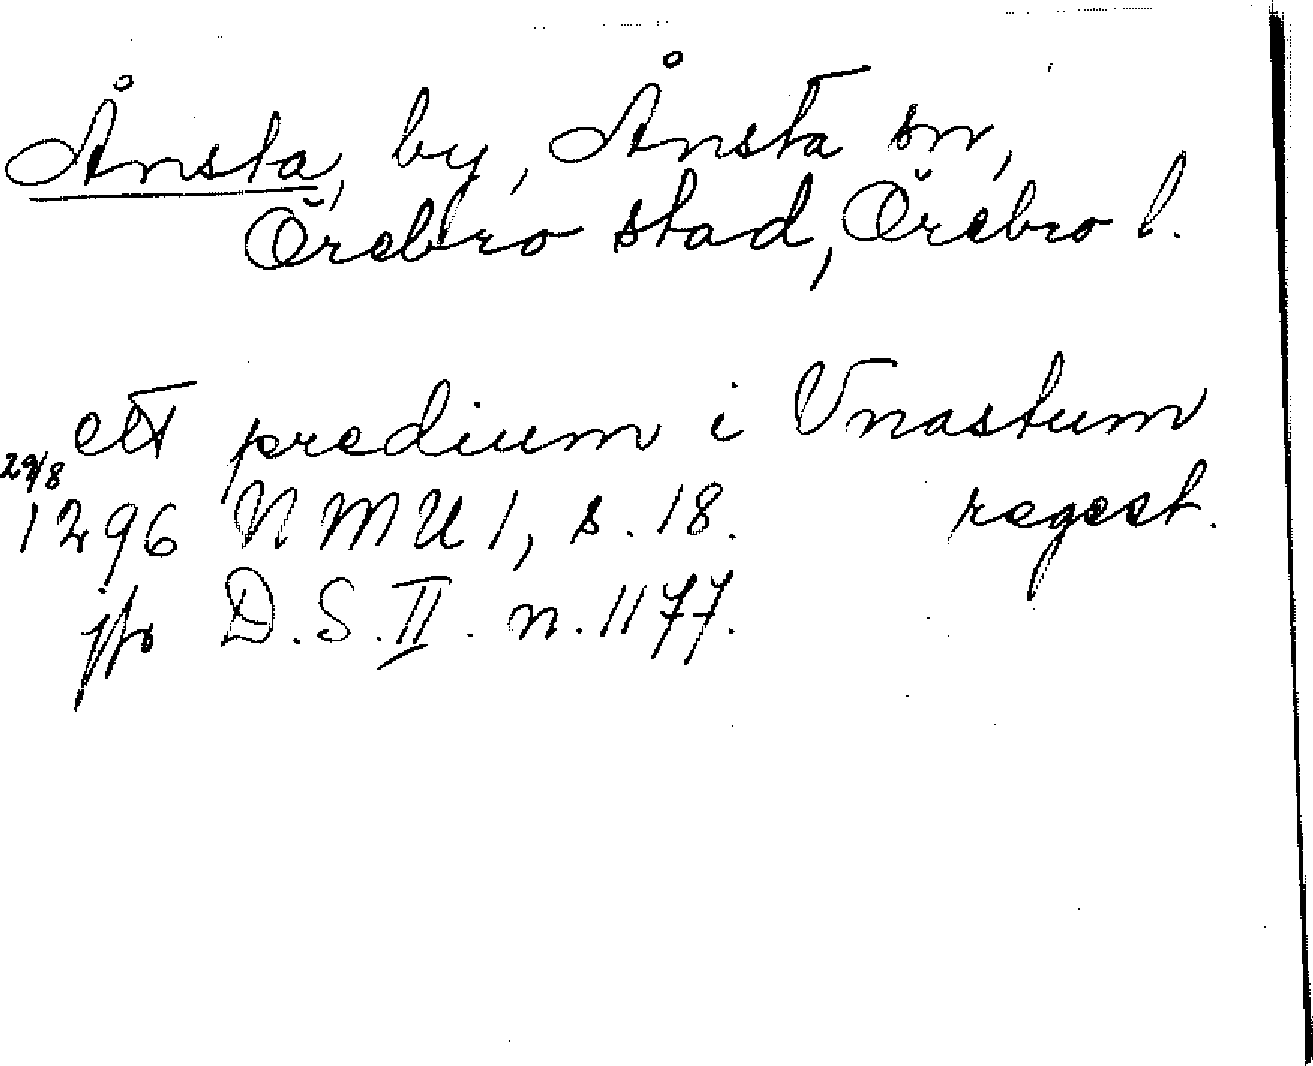 Ånsta, by, Ånsta sn,
Örebro stad, Örebro l.
ett predium i Vnastum
29/8
1296 NMU 1, s. 18. regest.
jfr D.S. II. n. 1177.